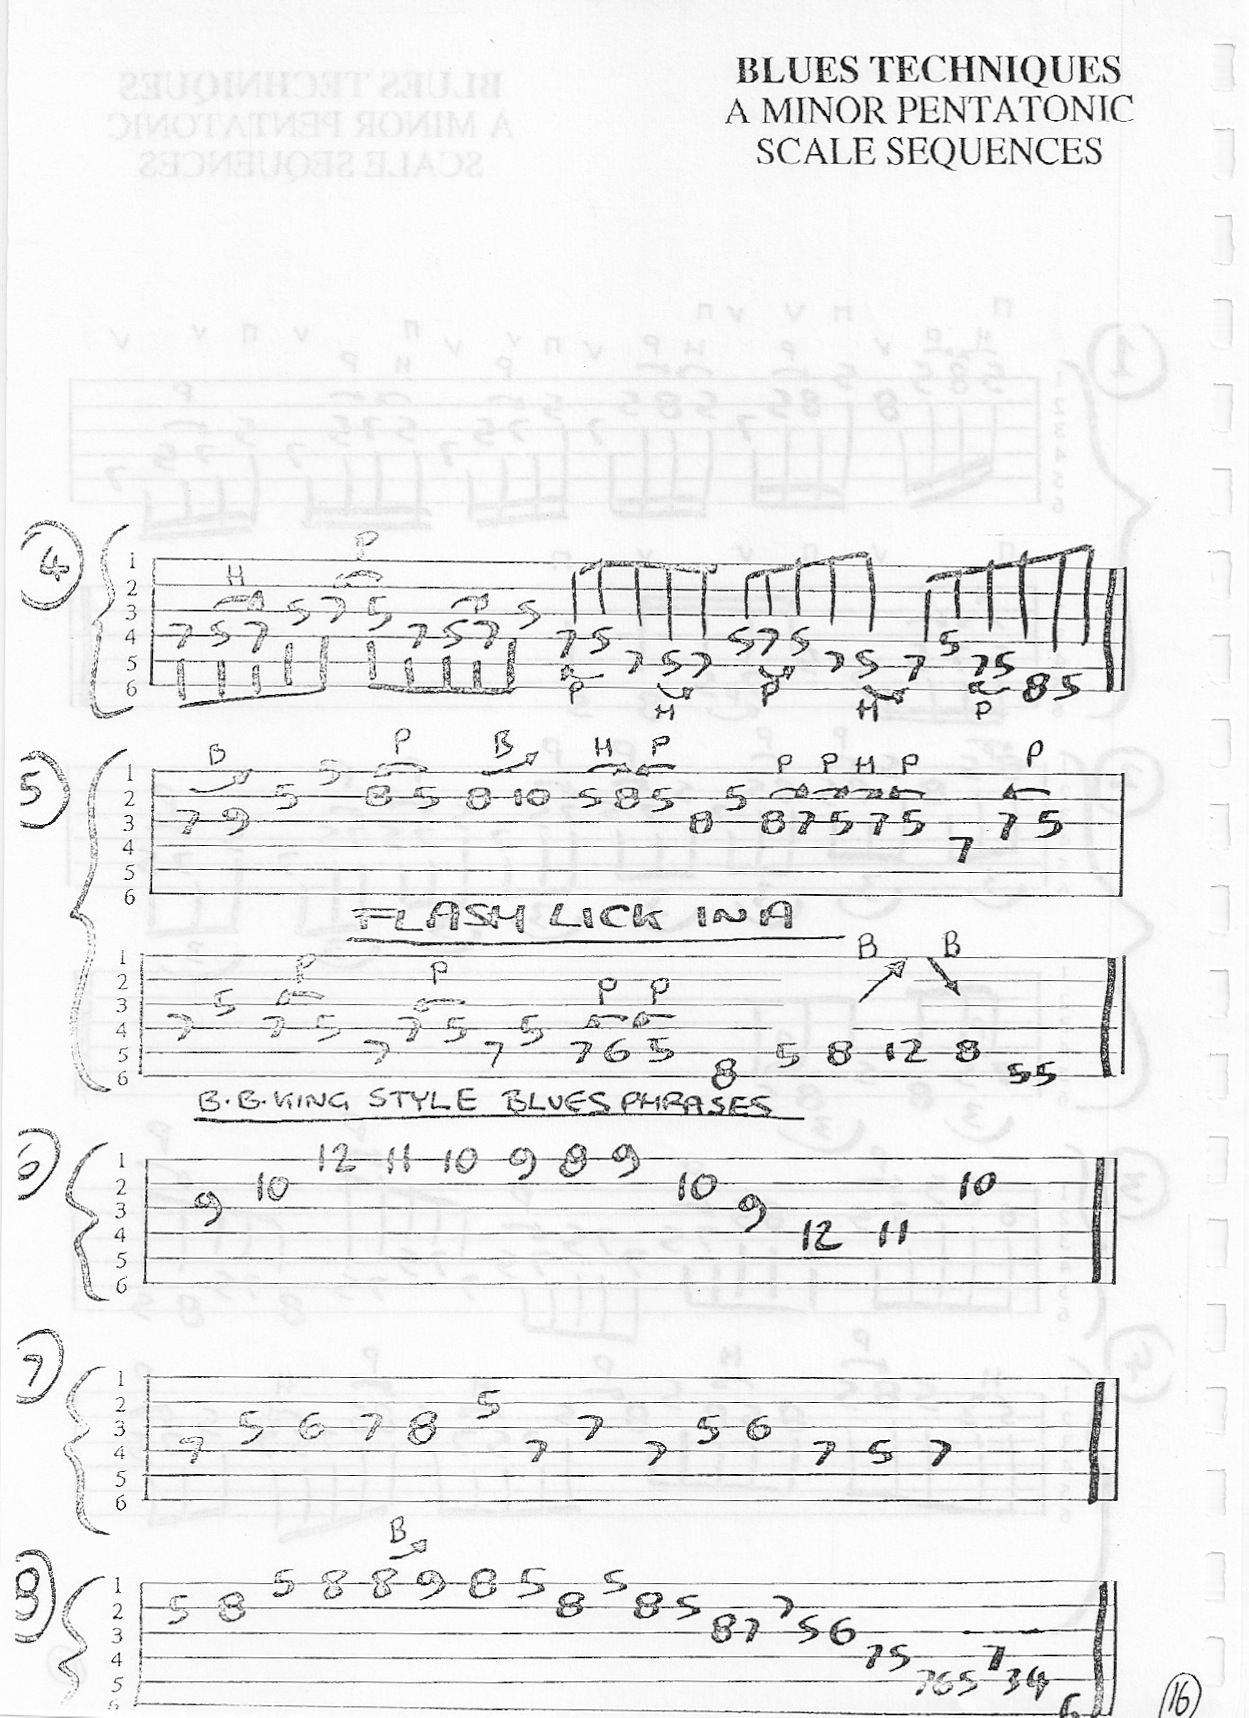 BLUES TECHNIQUES
A MINOR PENTATONIC
SCALE SEQUENCES
4
P
H
1
2
3 5 7 5 5
4 7 5 7 7 5 7 7 5 5 7 5 5
5 7 5 7 7 5 7 7 5
6 8 5
P H P H P
5
B P B H P P P H P P
1 5
2 7 9 5 8 5 8 10 5 8 5 5
3 8 8 7 5 7 5 7 5
4 7
5
6
FLASH LICK IN A
B B
P P P P
1
2
3 5
4 7 7 5 7 5 5
5 7 7 7 6 5 5 8 12 8
6 8 5 5
B.B. KING STYLE BLUES PHRASES
6
1 12 11 10 9 8 9
2 10 10 10
3 9 9
4 12 11
5
6
7
1
2 5
3 5 6 7 8 7 5 6
4 7 7 7 7 5 7
5
6
B
8
1 5 8 8 9 8 5 5
2 5 8 8 8 5 7
3 8 7 5 6
4 7 5 7
5 7 6 5 3 4
6 6
16